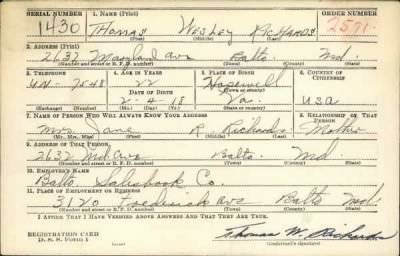 SERIAL NUMBER 1. NAME (Print) ORDER NUMBER
1430 THOMAS WESLEY RICHARDS 2571
(First) (Middle) (Last)
2. ADDRESS (Print)
2632 Maryland Ave Balto. Md.
(Number and street or R. F. D. number) (Town) (County) (State)
3. TELEPHONE 4. AGE IN YEARS 5. PLACE OF BIRTH 6. COUNTRY OF CITIZENSHIP
UN-7548 22 Hopewell
DATE OF BIRTH (Town or county)
2-4-18 Va. USA
(Exchange) (Number) (Mo.) (Day) (Yr.) (State or country)
7. NAME OF PERSON WHO WILL ALWAYS KNOW YOUR ADDRESS 8. RELATIONSHIP OF THAT PERSON
Mrs Jane R Richards Mother
(Mr., Mrs., Miss) (First) (Middle) (Last)
9. ADDRESS OF THAT PERSON
2632 Md. Ave Balto. Md
(Number and street or R. F. D. number) (Town) (County) (State)
10. EMPLOYER'S NAME
Balto. Salesbook Co.
11. PLACE OF EMPLOYMENT OR BUSINESS
3120 Frederick Ave Balto Md.
(Number and street or R. F. D. number) (Town) (County) (State)
I AFFIRM THAT I HAVE VERIFIED ABOVE ANSWERS AND THAT THEY ARE TRUE.
REGISTRATION CARD
D. S. S. FORM 1 (over) Thomas W. Richards
(Registrant's signature)